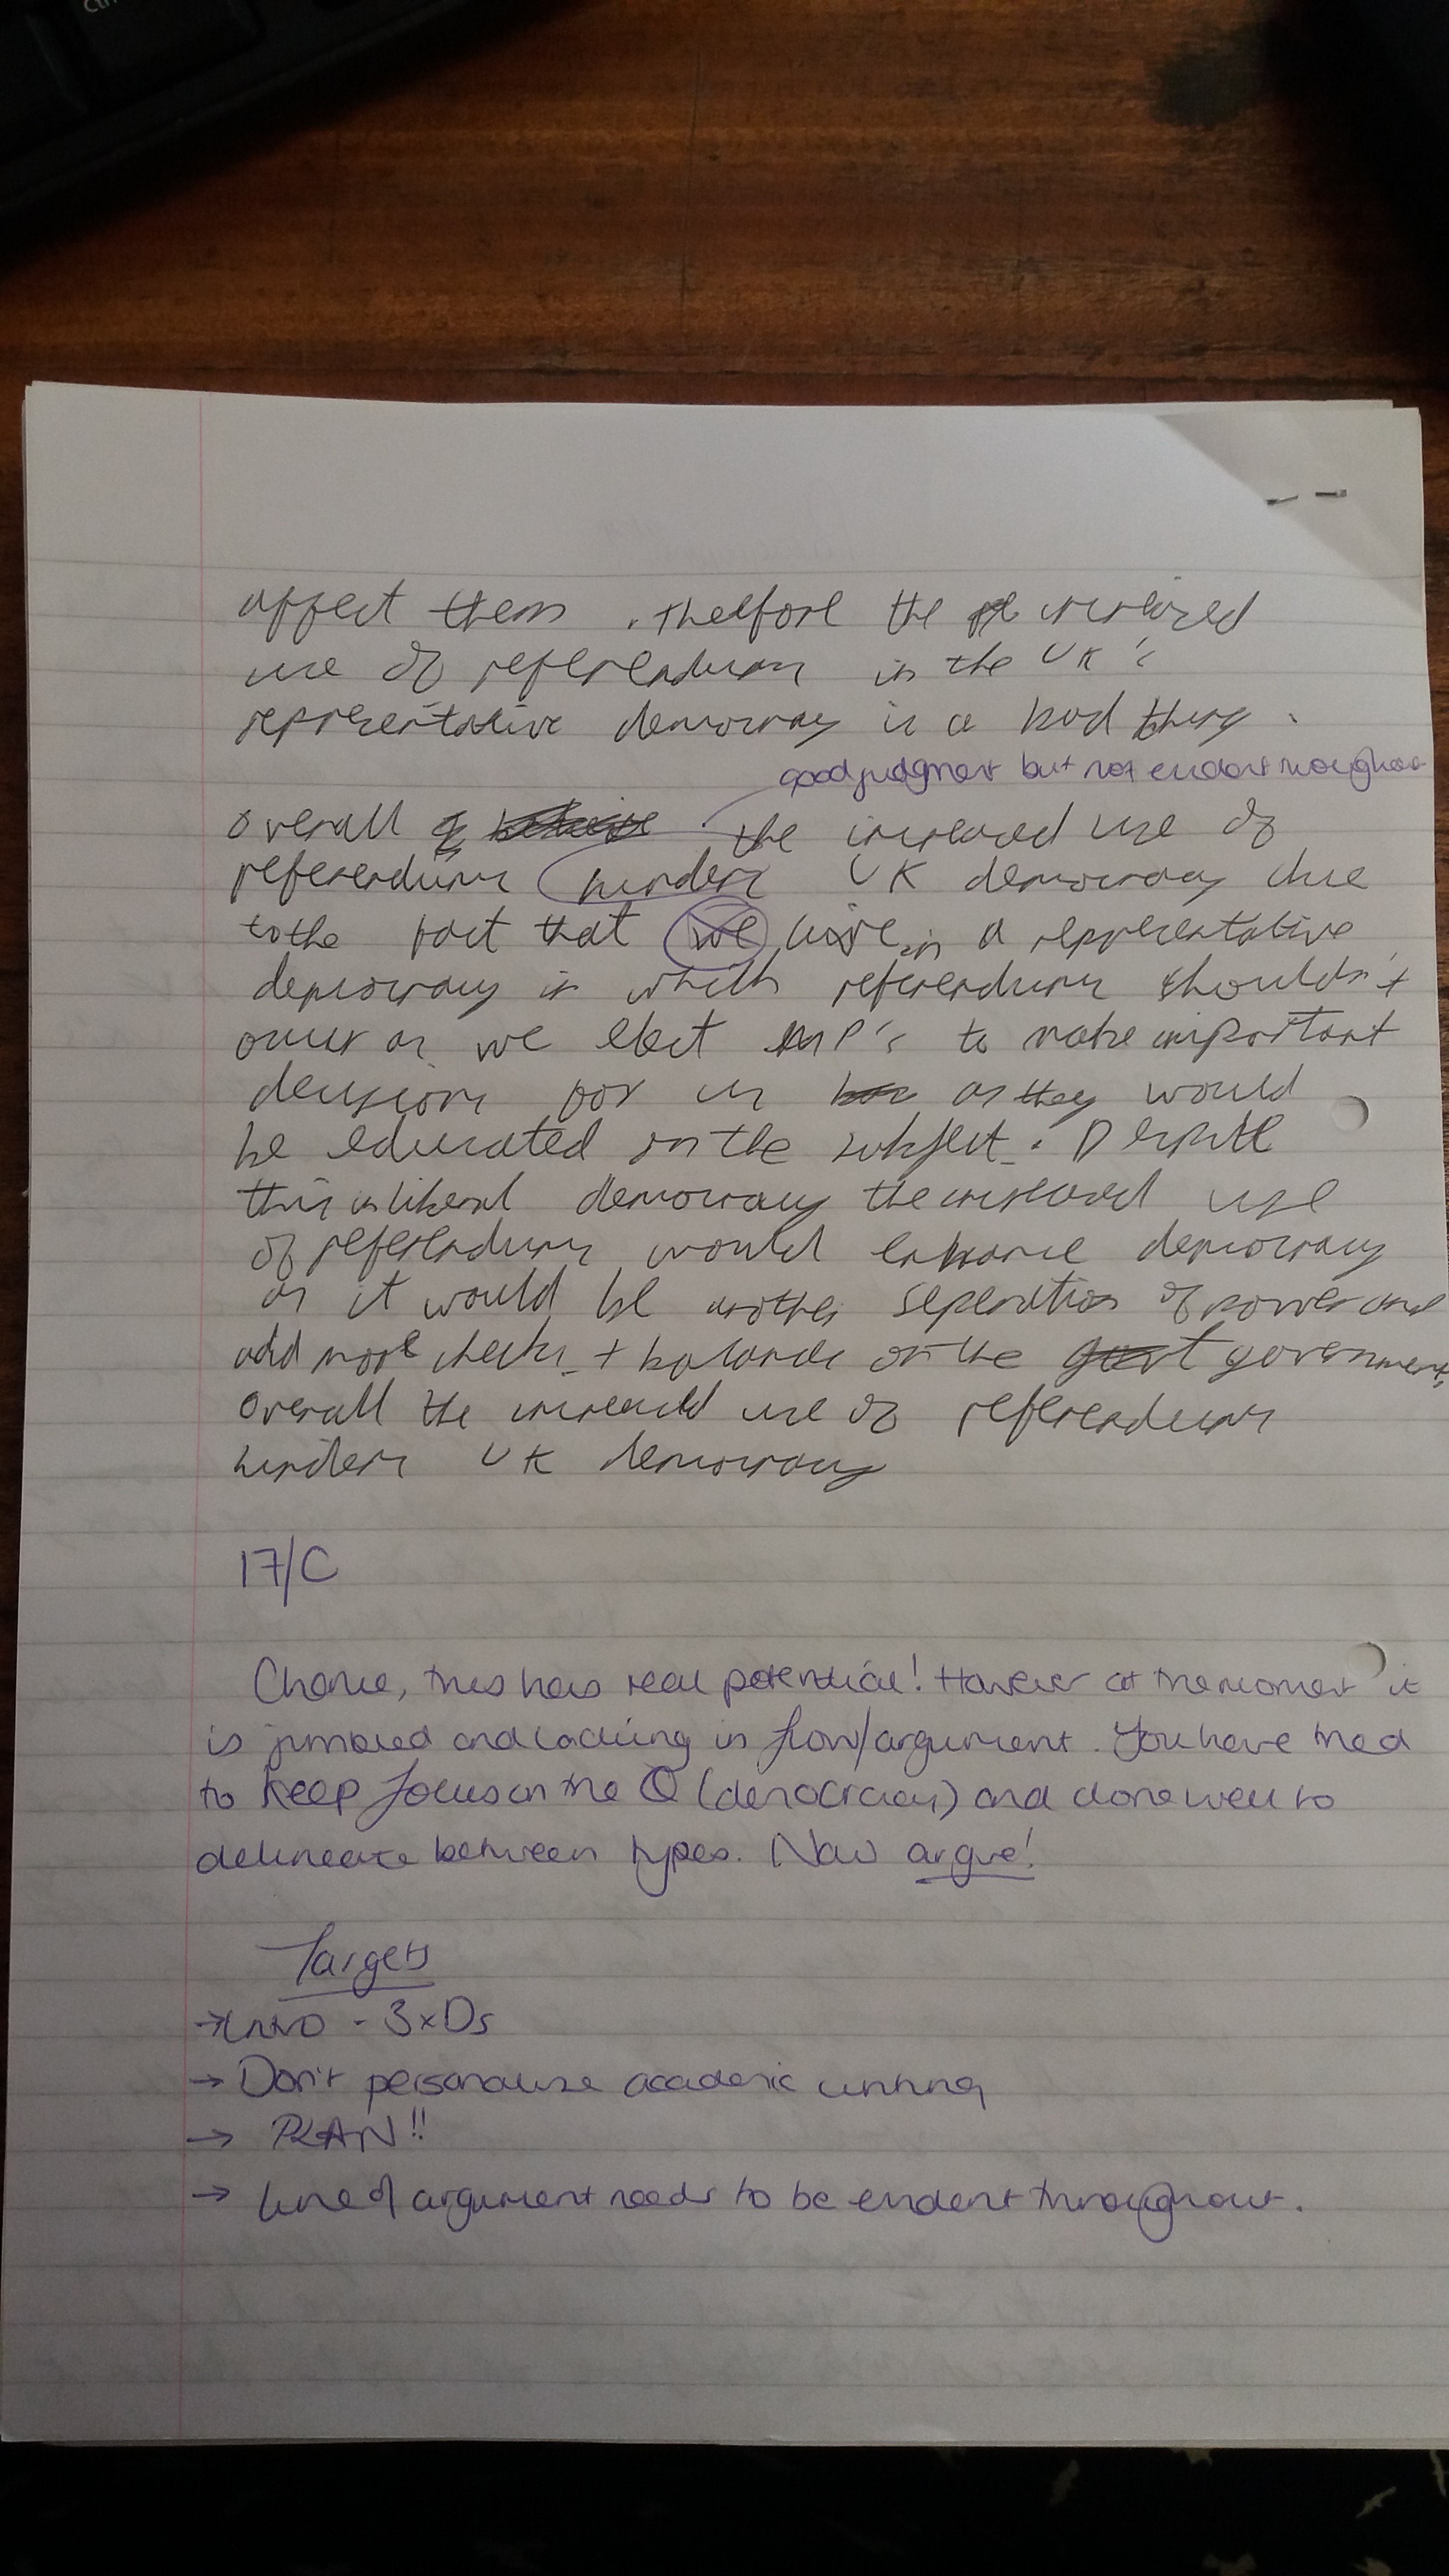 Ctrl
affect them . Therefore the increased
use of referendums in the UK's
representative democracy is a bad thing .
good judgment but not evident throughout
Overall I the increased use of
referendums hinders UK democracy due
to the fact that we live in a representative
democracy in which referendums shouldn't
occur as we elect MP's to make important
decisions for us as they would
be educated on the subject . Despite
this in liberal democracy the increased use
of referendums would enhance democracy
as it would be another seperation of power and
add more checks + balance on the government,
Overall the increased use of referendums
hinders UK democracy
17/C
this has real potential! However at the moment it
is jumbled and lacking in flow/argument. You have tried
to keep focus on the Q (democracy) and done well to
delineate between types. Now argue!
Targets
→ Intro - 3xDs
→ Don't personalise academic writing
→ PLAN!!
→ Line of argument needs to be evident throughout.